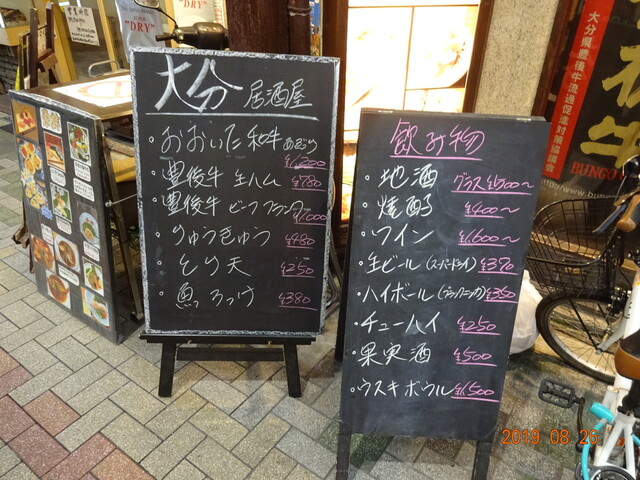 大分 居酒屋
・おおいた和牛 あぶり ¥1,200
・豊後牛 生ハム ¥780
・豊後牛 ビーフ ¥1,000
・りゅうきゅう ¥480
・とり天 ¥250
・魚ろっけ ¥380
飲み物
・地酒 グラス ¥500〜
・焼酎 ¥400〜
・ワイン ¥1,600〜
・生ビール(スーパードライ) ¥390
・ハイボール(ブラックニッカ) ¥350
・チューハイ ¥250
・果実酒 ¥500
・ウスキボウル ¥1,500
"DRY"
"DRY"
大分県豊後牛流通促進対策協議会
BUNGO
http://www.bun
2019 08 26